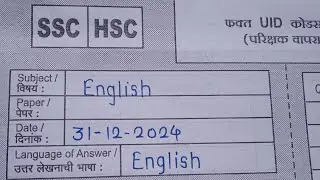 SSC HSC
फक्त UID कोडस
(परिक्षक वापरा
Subject /
विषय : English
Paper /
पेपर :
Date /
दिनांक : 31-12-2024
Language of Answer /
उत्तर लेखनाची भाषा : English